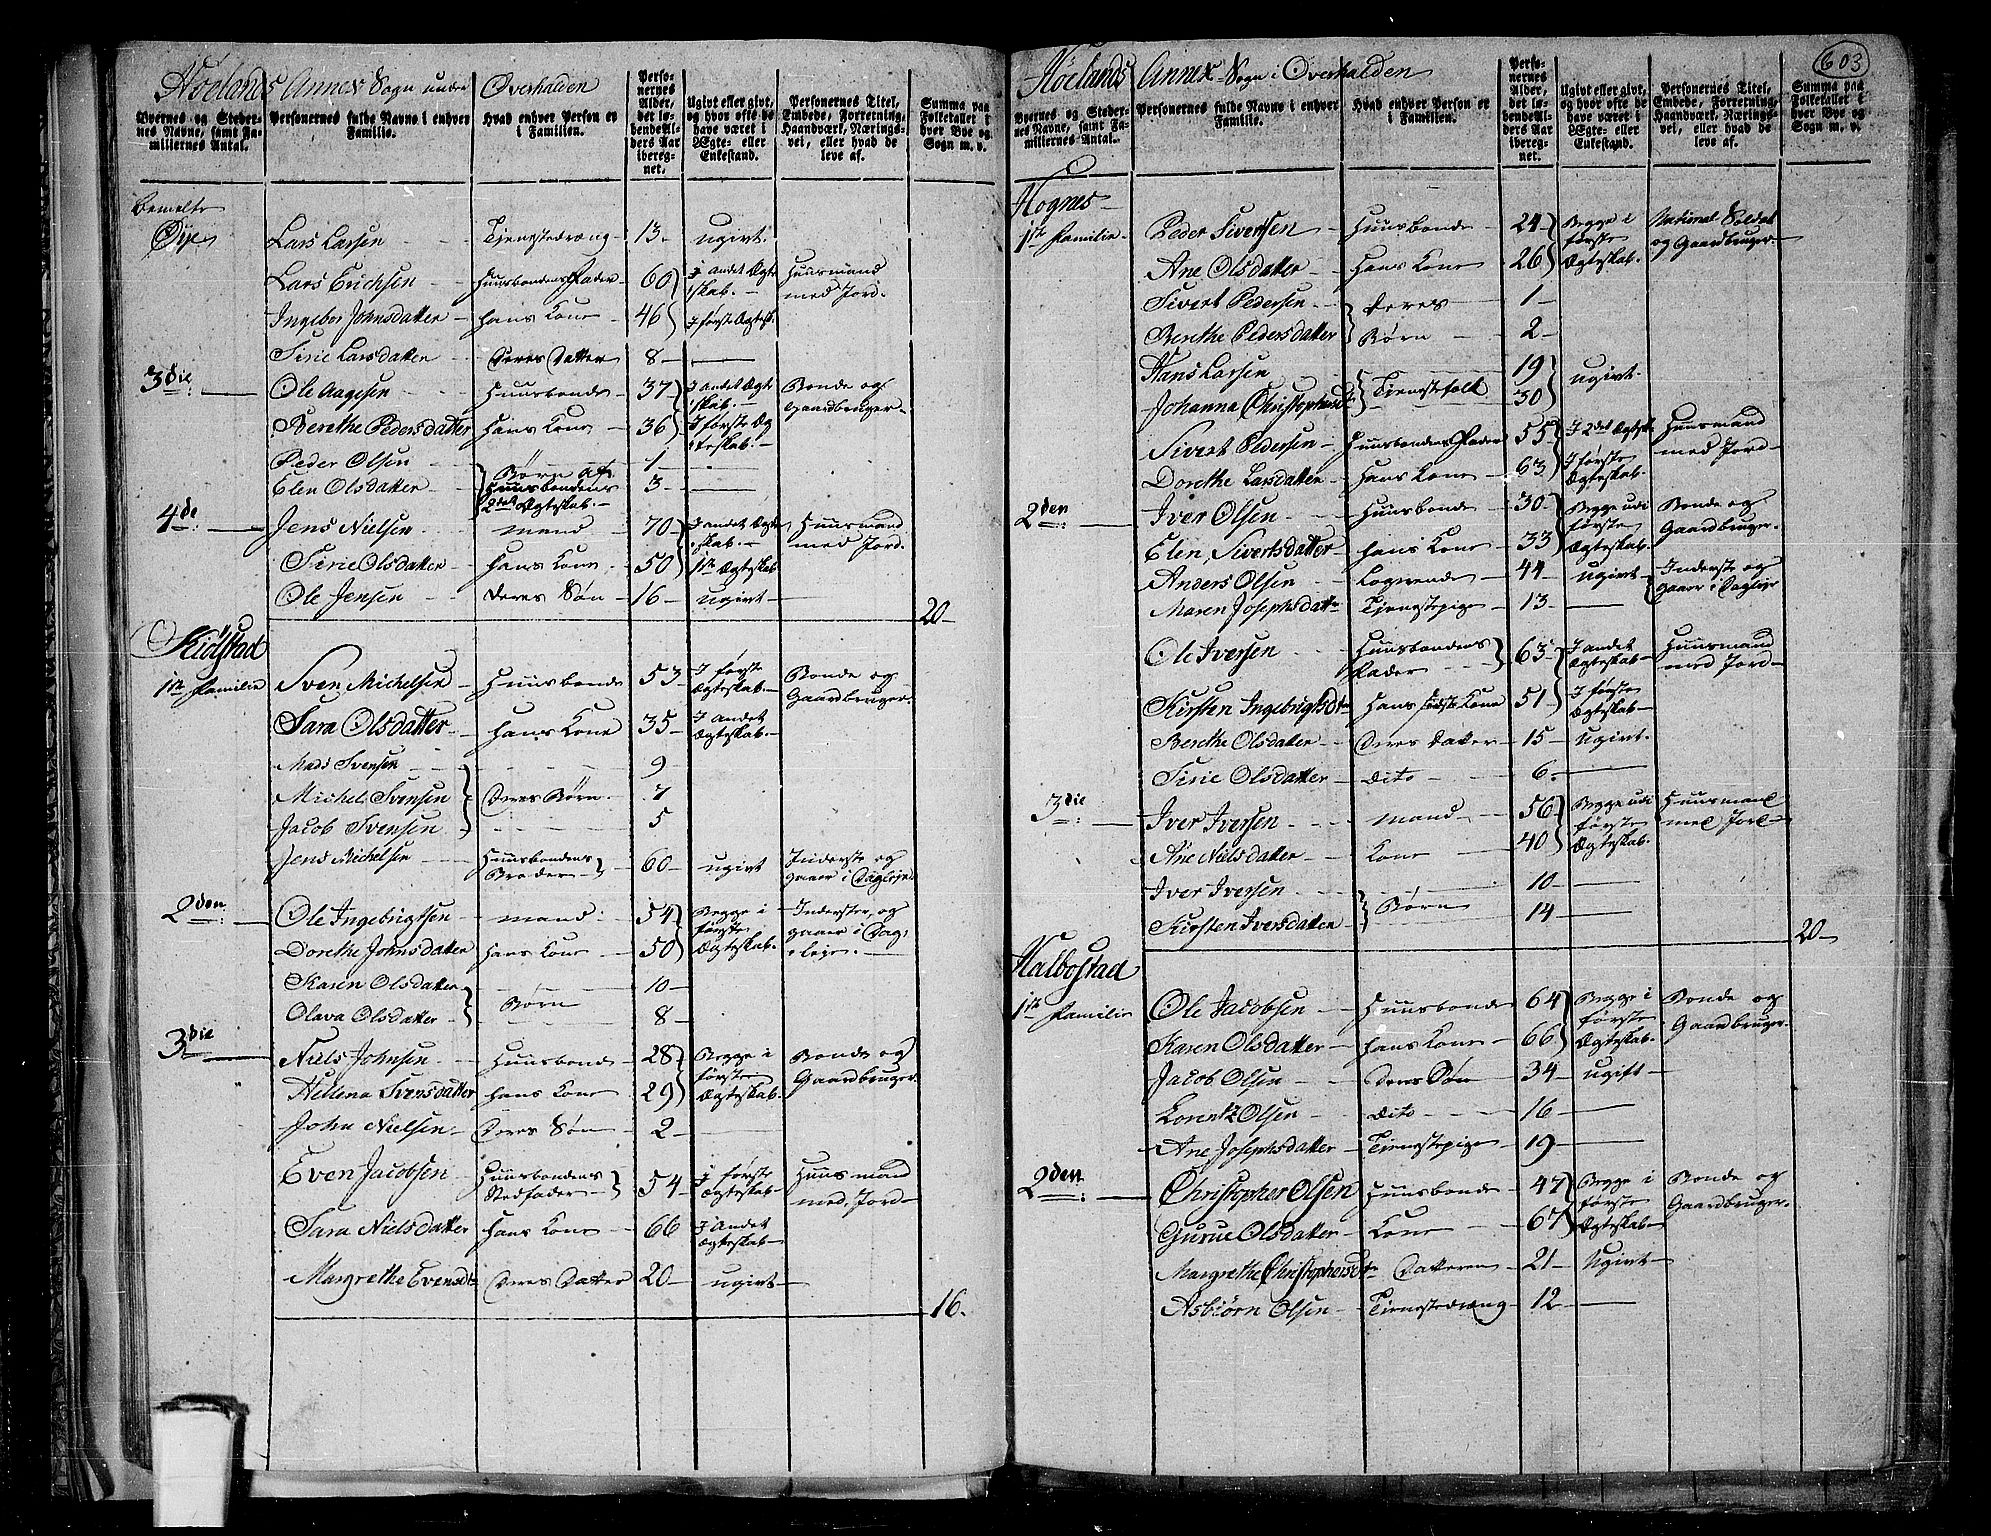 Höelands Annex Sogn under Overhalden
Byernes og Stedernes Navne, samt Familiernes Antal.
Personernes fulde Navne i enhver Familie.
Hvad enhver Person er i Familien.
Personernes Alder, det løbende Alders Aar iberegnet.
Ugivt eller givt, og hvor ofte de have været i Ægte- eller Enkestand.
Personernes Titel, Embede, Forretning, Haandværk, Næringsvei, eller hvad de leve af.
Summa paa Folketallet i hver Bye og Sogn m. v.
bemelte
Øye Lars Larsen Tjenestedreng 13 ugivt
Lars Erichsen Huusbondens Fader 60 I andet Ægteskab Huusmand med Jord
Ingebor Johnsdatter hans Kone 46 I første Ægtesk.
Sirie Larsdatter Deres Datter 8
3die Ole Aagesen Huusbonde 37 I andet Ægteskab Bonde og Gaardbruger
Berethe Pedersdatter Hans Kone 36 I første Ægteskab
Peder Olsen 1
Elen Olsdatter Børn af Huusbondens 2det Ægteskab 3
4de Jens Nielsen Mand 70 I andet Ægteskab Huusmand med Jord
Sirie Olsdatter Hans Kone 50 1te Ægteskab
Ole Jensen Deres Søn 16 ugivt
20
Kiölstad
1te Familie Sven Michelsen Huusbonde 53 I første Ægteskab Bonde og Gaardbruger
Sara Olsdatter Hans Kone 35 I andet Ægteskab
Mads Svensen 9
Michel Svensen Deres Børn 7
Jacob Svensen 5
Jens Michelsen Huusbondens Broder 60 ugivt Inderste og gaaer i Dagleje
2den Ole Ingebrigtsen Mand 54 Begge i første Ægteskab Inderster, og gaaer i Dagleje
Dorethe Johnsdatter Hans Kone 50
Karen Olsdatter 10
Olava Olsdatter Børn 8
3die Niels Johnsen Huusbonde 28 Begge i første Ægteskab Bonde og Gaardbruger
Hellena Svensdatter hans Kone 29
John Nielsen Deres Søn 2
Even Jacobsen Huusbondens Stedfader 54 I første Ægteskab Huusmand med Jord
Sara Nielsdatter Hans Kone 66 I Andet Ægteskab
Margrethe Evensdtr Deres Datter 20 ugivt
16.
603
Höelands Annex Sogn i Overhalden
Byernes og Stedernes Navne, samt Familiernes Antal.
Personernes fulde Navne i enhver Familie.
Hvad enhver Person er i Familien.
Personernes Alder, det løbende Alders Aar iberegnet.
Ugivt eller givt, og hvor ofte de have været i Ægte- eller Enkestand.
Personernes Titel, Embede, Forretning, Haandværk, Næringsvei, eller hvad de leve af.
Summa paa Folketallet i hver Bye og Sogn m. v.
Hognes
1te Familie Peder Sivertsen Huusbonde 24 Begge i første Ægteskab National Soldat og Gaardbruger
Ane Olsdatter Hans Kone 26
Sivert Pedersen Deres 1
Berethe Pedersdatter Børn 2
Hans Larsen 19 ugivt
Johanna Christophersdtr Tjenestefolk 30
Sivert Pedersen Huusbondens Fader 55 I 2det Ægtesk. Huusmand med Jord
Dorethe Larsdatter Hans Kone 63 I første Ægteskab
2den Iver Olsen Huusbonde 30 Begge udi første Ægteskab Bonde og Gaardbruger
Elen Sivertsdatter hans Kone 33
Anders Olsen Logerende 44 ugivt Inderste og gaaer i Dagleje
Maren Josephsdatter Tjenestepige 13
Ole Iversen Huusbondens Fader 63 I andet Ægteskab Huusmand med Jord
Kirsten Ingebrigtsdtr Hans Kone 51 I første Ægteskab
Berethe Olsdatter Deres Datter 15 ugivt
Sirie Olsdatter dito 6
3die Iver Iversen Mand 56 Begge udi første Ægteskab Huusmand med Jord
Ane Nielsdatter Kone 40
Iver Iversen 10
Kirsten Iversdatter Børn 14
20
Halbostad
1te Familie Ole Jacobsen Huusbonde 64 Begge i første Ægteskab Bonde og Gaardbruger
Karen Olsdatter Hans Kone 66
Jacob Olsen Deres Søn 34 ugift
Lorentz Olsen dito 16
Ane Josephsdatter Tjenestepige 19
2den Christopher Olsen Huusbonde 47 Begge i første Ægteskab Bonde og Gaardbruger
Gurue Olsdatter Kone 67
Margrethe Christophersdtr Datteren 21 Ugivt
Asbiörn Olsen Tjenestedreng 12